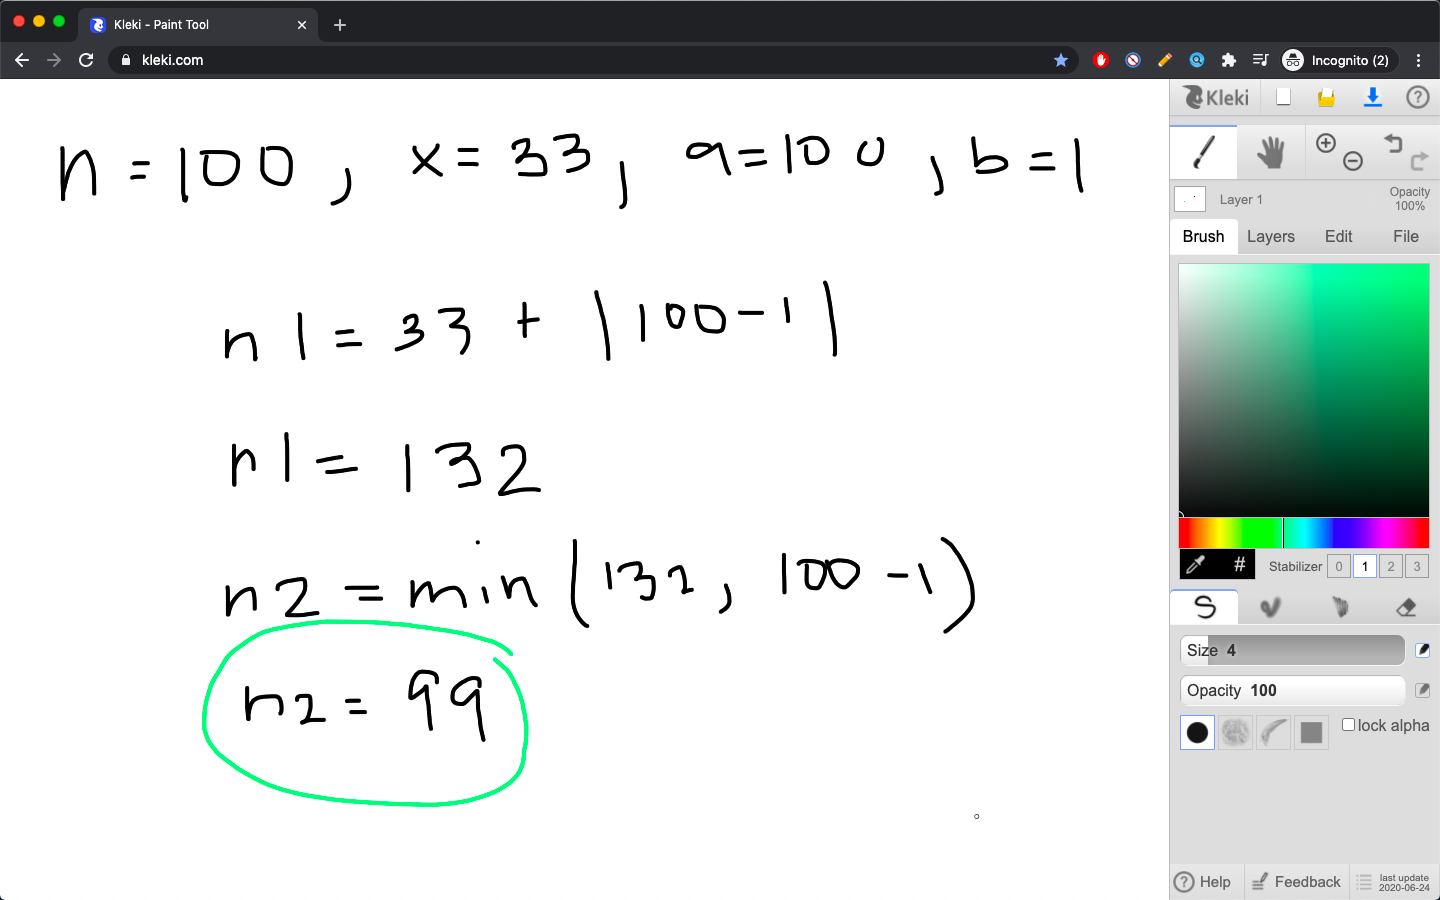 Kleki - Paint Tool
kleki.com
Incognito (2)
Kleki
n = 100, x = 33, a = 100, b = 1
n1 = 33 + |100 - 1|
n1 = 132
n2 = min(132, 100 - 1)
n2 = 99
Layer 1
Opacity
100%
Brush Layers Edit File
# Stabilizer 0 1 2 3
Size 4
Opacity 100
lock alpha
Help Feedback last update
2020-06-24